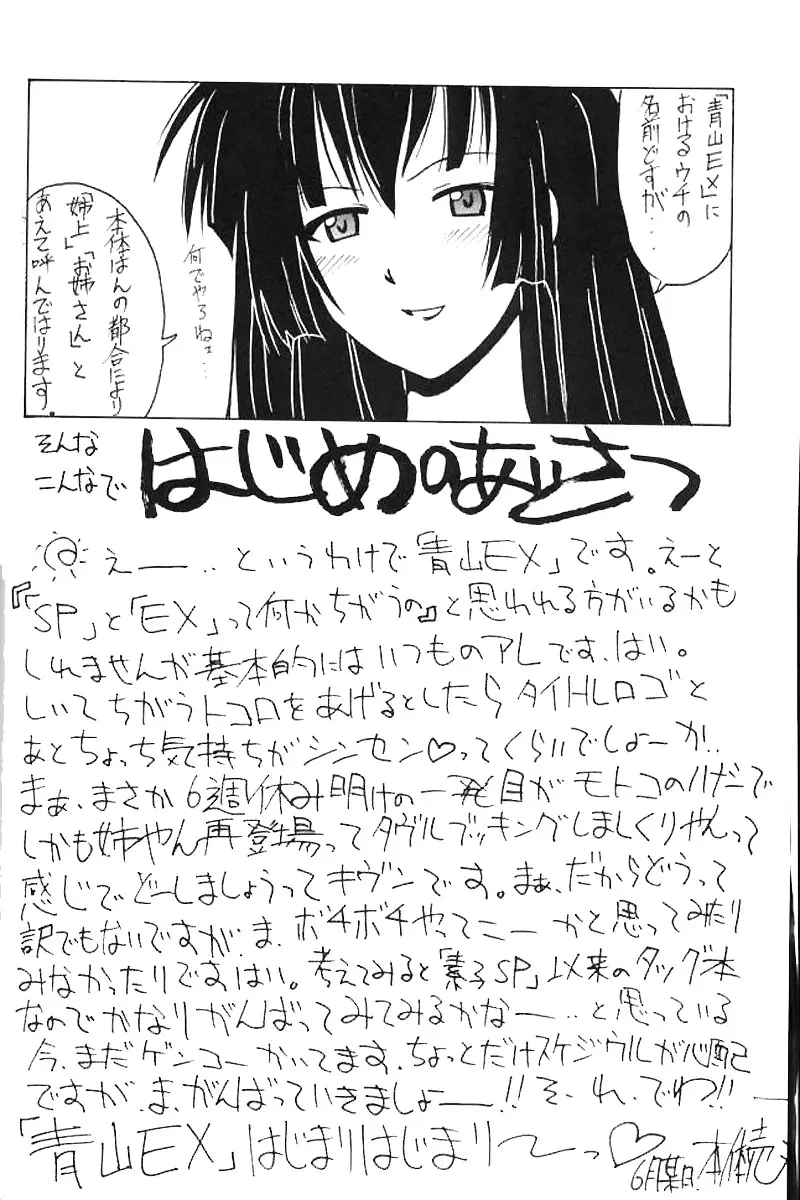 「青山EX」に
おけるウチの
名前どすが・・・
何でやろねェ・・・
本体はんの都合により
姉上」「お姉さん」と
あえて呼んではります。
そんな
こんなで
はじめのあいさつ
えー―・・というわけで「青山EX」です。えーと
『「SP」と「EX」って何かちがうの』と思われる方がいるかも
しれませんが基本的にはいつものアレです、はい。
しいてちがうトコロをあげるとしたらタイトルロゴと
あとちょっち気持ちがシンセン♡ってくらいでしょーか..
まぁ、まさか6週休み明けの一発目がモトコのハナシーで
しかも姉やん再登場ってダヴルブッキングしましくりやんって
感じでどーしましょうってキヴンです。まぁ、だからどうって
訳でもないですが、ま、ボチボチやってこーかと思ってみたり
みなかったりですはい。考えてみると「素子SP」以来のタッグ本
なのでかなりがんばってみてみるかなー・・・と思っている
今、まだゲンコーかいてます、ちょっとだけスケジウルが心配
ですが、ま、がんばっていきましょー―!!そ、れ、でわ!!
「青山EX」はじまりはじまり〜っ♡
6月某日 本体売